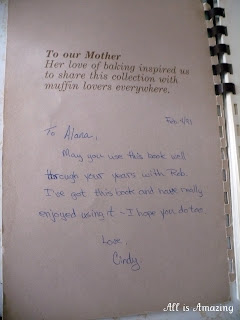 To our Mother
Her love of baking inspired us
to share this collection with
muffin lovers everywhere.
Feb. 9/91
To Alana,
May you use this book well
through your years with Rob.
I've got this book and have really
enjoyed using it - I hope you do too
Love
Cindy.
All is Amazing